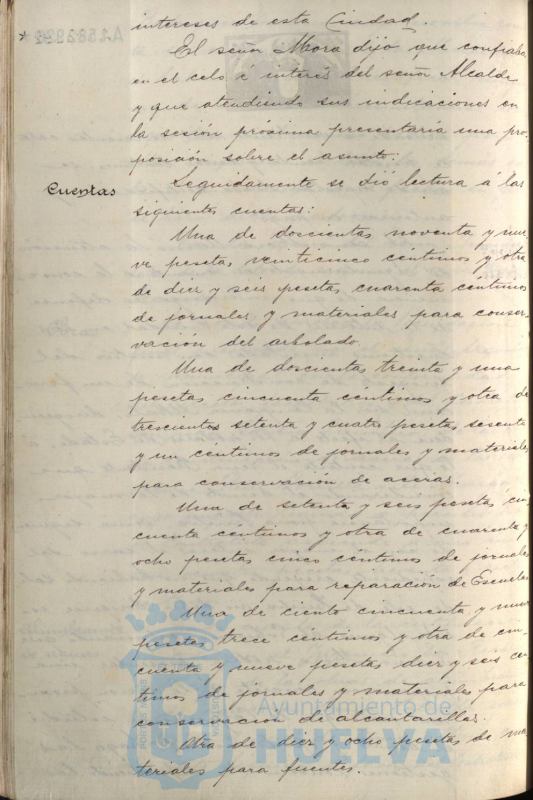 intereses de esta Ciudad.
El señor Mora dijo que confiaba
en el celo é interés del señor Alcalde
y que atendiendo sus indicaciones en
la sesión próxima presentaría una pro-
posición sobre el asunto.
Cuentas
Seguidamente se dió lectura á las
siguientes cuentas:
Una de doscientas noventa y nue-
ve pesetas, veinticinco céntimos y otra
de diez y seis pesetas, cuarenta céntimos
de jornales y materiales para conser-
vación del arbolado.
Una de doscientas treinta y una
pesetas cincuenta céntimos y otra de
trescientas setenta y cuatro pesetas, sesenta
y un céntimos de jornales y materiales
para conservación de aceras.
Una de setenta y seis pesetas cin-
cuenta céntimos y otra de cuarenta y
ocho pesetas cinco céntimos de jornales
y materiales para reparación de Escuelas
Una de ciento cincuenta y nueve
pesetas, trece céntimos y otra de cin-
cuenta y nueve pesetas diez y seis cén-
timos de jornales y materiales para
conservación de alcantarillas.
Otra de diez y ocho pesetas de ma-
teriales para fuentes.
Ayuntamiento de
HUELVA